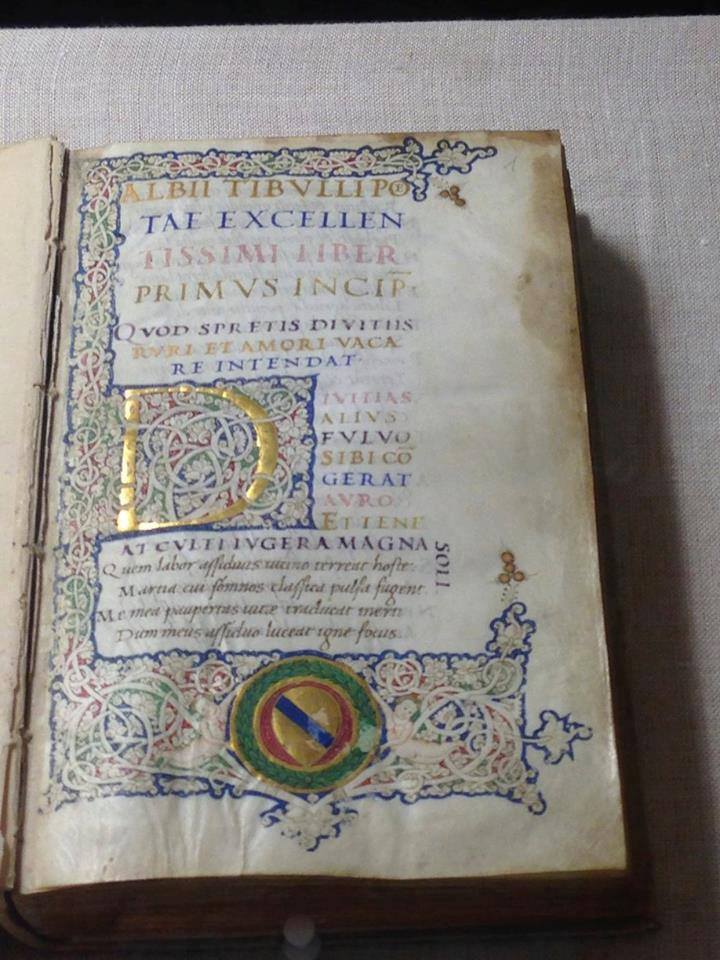 ALBII TIBVLLI POE
TAE EXCELLEN
TISSIMI LIBER
PRIMVS INCIP̄
QVOD SPRETIS DIVITIIS
RVRI ET AMORI VACA
RE INTENDAT
DIVITIAS
ALIVS
FVLVO
SIBI CŌ
GERAT
AVRO
ET TENE
AT CVLTI IVGERA MAGNA
SOLI
Quem labor assiduus uicino terreat hoste
Martia cui somnos classica pulsa fugent
Me mea paupertas uitae traducat inerti
Dum meus assiduo luceat igne focus